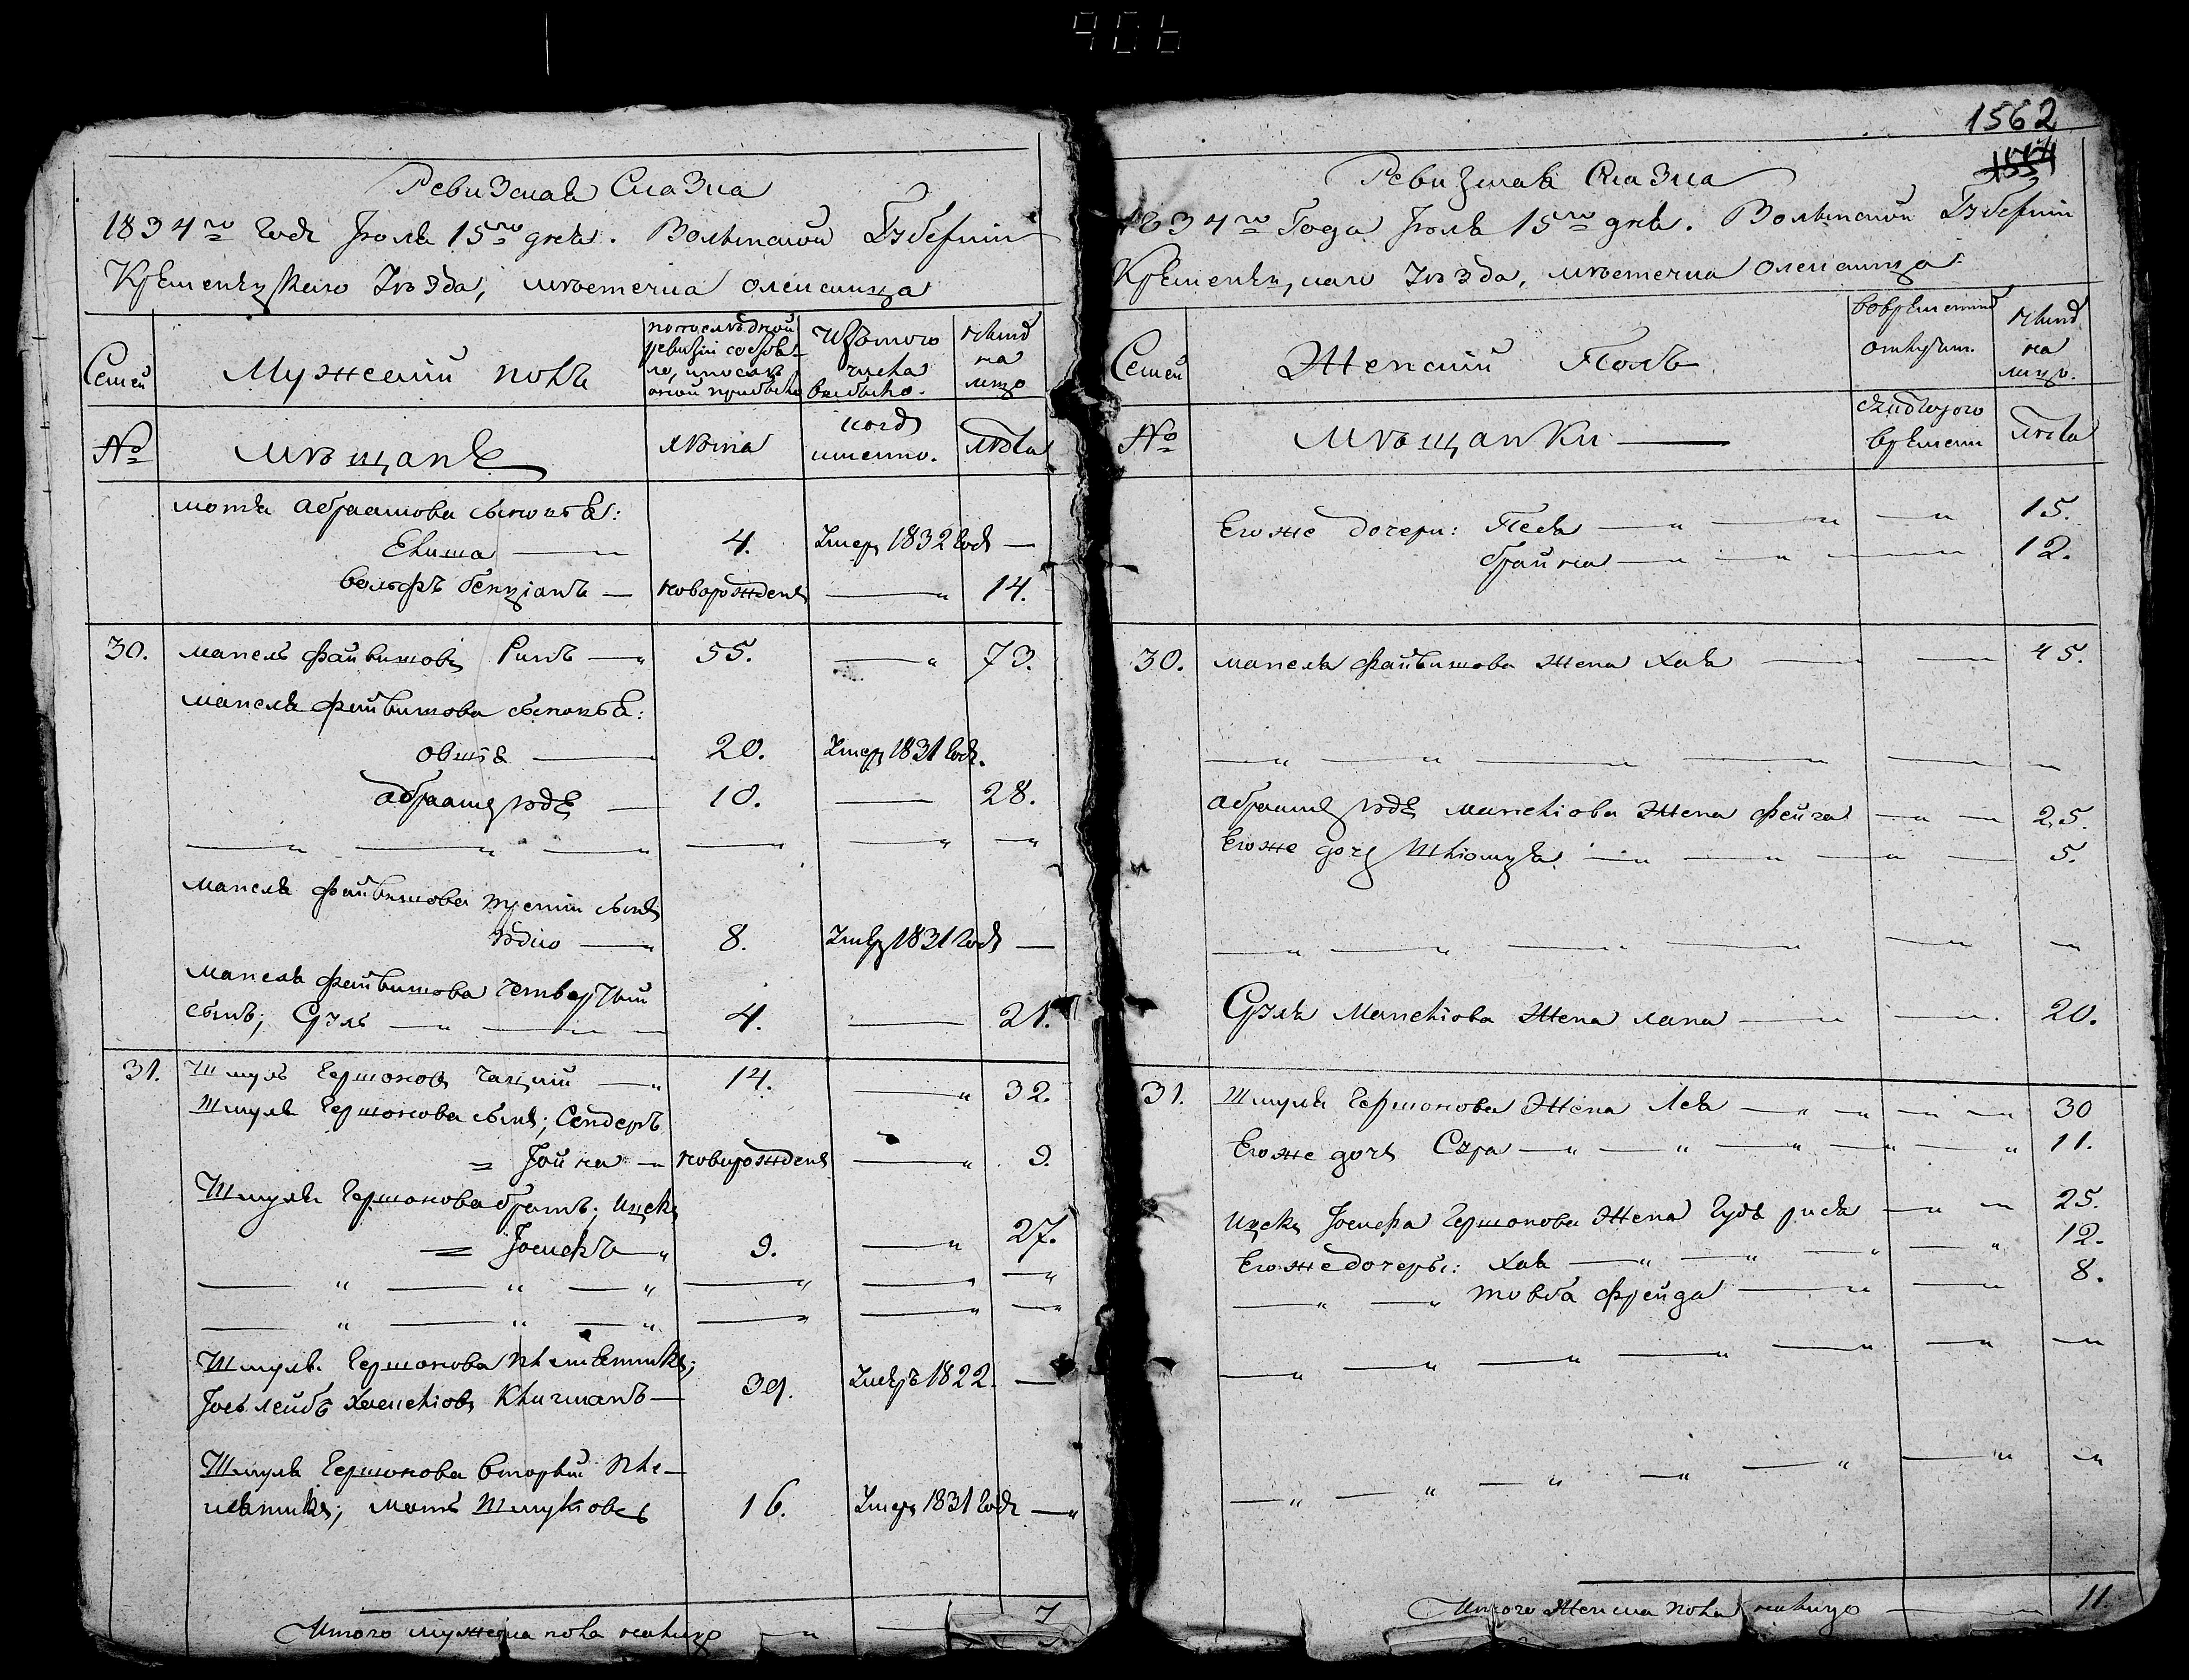 906
Ревизская Сказка
1834го года Іюля 15го дня. Волынской Губерніи
Кременецкаго Уѣзда, мѣстечка Олексинца
Семьи
Мужескій полъ
по последной ревизіи состояло, и после оной прибыло
Изъ того числа выбыло.
Нынѣ на лицо
№
Мѣщанѣ
Лѣта
когда именно.
Лѣта
Мотя Абраамова сыновья:
Елиша — 4. Умеръ 1832 года —
Вольфъ Бенціанъ — новорожденъ — 14.
30. Манель Файвишовъ Ринъ — 55. — 73.
Манеля Файвишова сыновья:
Овшія — 20. Умеръ 1831 года.
Абраамъ Юдѣ — 10. — 28.
Манеля Файвишова третій сынъ
— 8. Умеръ 1831 года —
Манеля Файвишова четвертый
сынъ; Сруль — 4. — 21.
31. Шмуль Гершоновъ — 14. — 32.
Шмуля Гершонова сынъ; Сендеръ
= Іойна — новорожденъ — 9.
Шмуля Гершонова братъ; Ицекъ
= Іосифъ — 9. — 27.
Шмуля Гершонова племянникъ;
Іось Лейбъ Хаскеліовъ Клигманъ — 39. Умеръ 1822. —
Шмуля Гершонова вторый пле-
мянникъ; Моть Шмуліовъ 16. Умеръ 1831 года —
Итого мужеска пола налицо — 7
1562
Ревизская Сказка
1834го Года Іюля 15го дня. Волынской Губерніи
Кременецкаго Уѣзда, мѣстечка Олексинца
Семьи
Женскій Полъ
во временной отлучкѣ.
Нынѣ на лицо.
№
Мѣщанки —
съ котораго времени
Лѣта
Его же дочери: Песя — 15.
Брайна — 12.
30. Манеля Файвишова жена Хая — 45.
Абраамъ Юдѣ Манеліова жена Фейга — 25.
Его же дочь Шліомця — 5.
Сруля Манеліова жена Хана — 20.
31. Шмуля Гершонова жена Лея — 30
Его же дочь Сура — 11.
Ицекъ Іосифа Гершонова жена Гудя Рися — 25.
Его же дочеры: Хая — 12.
Товба Фрейда — 8.
Итого женска пола налицо — 11